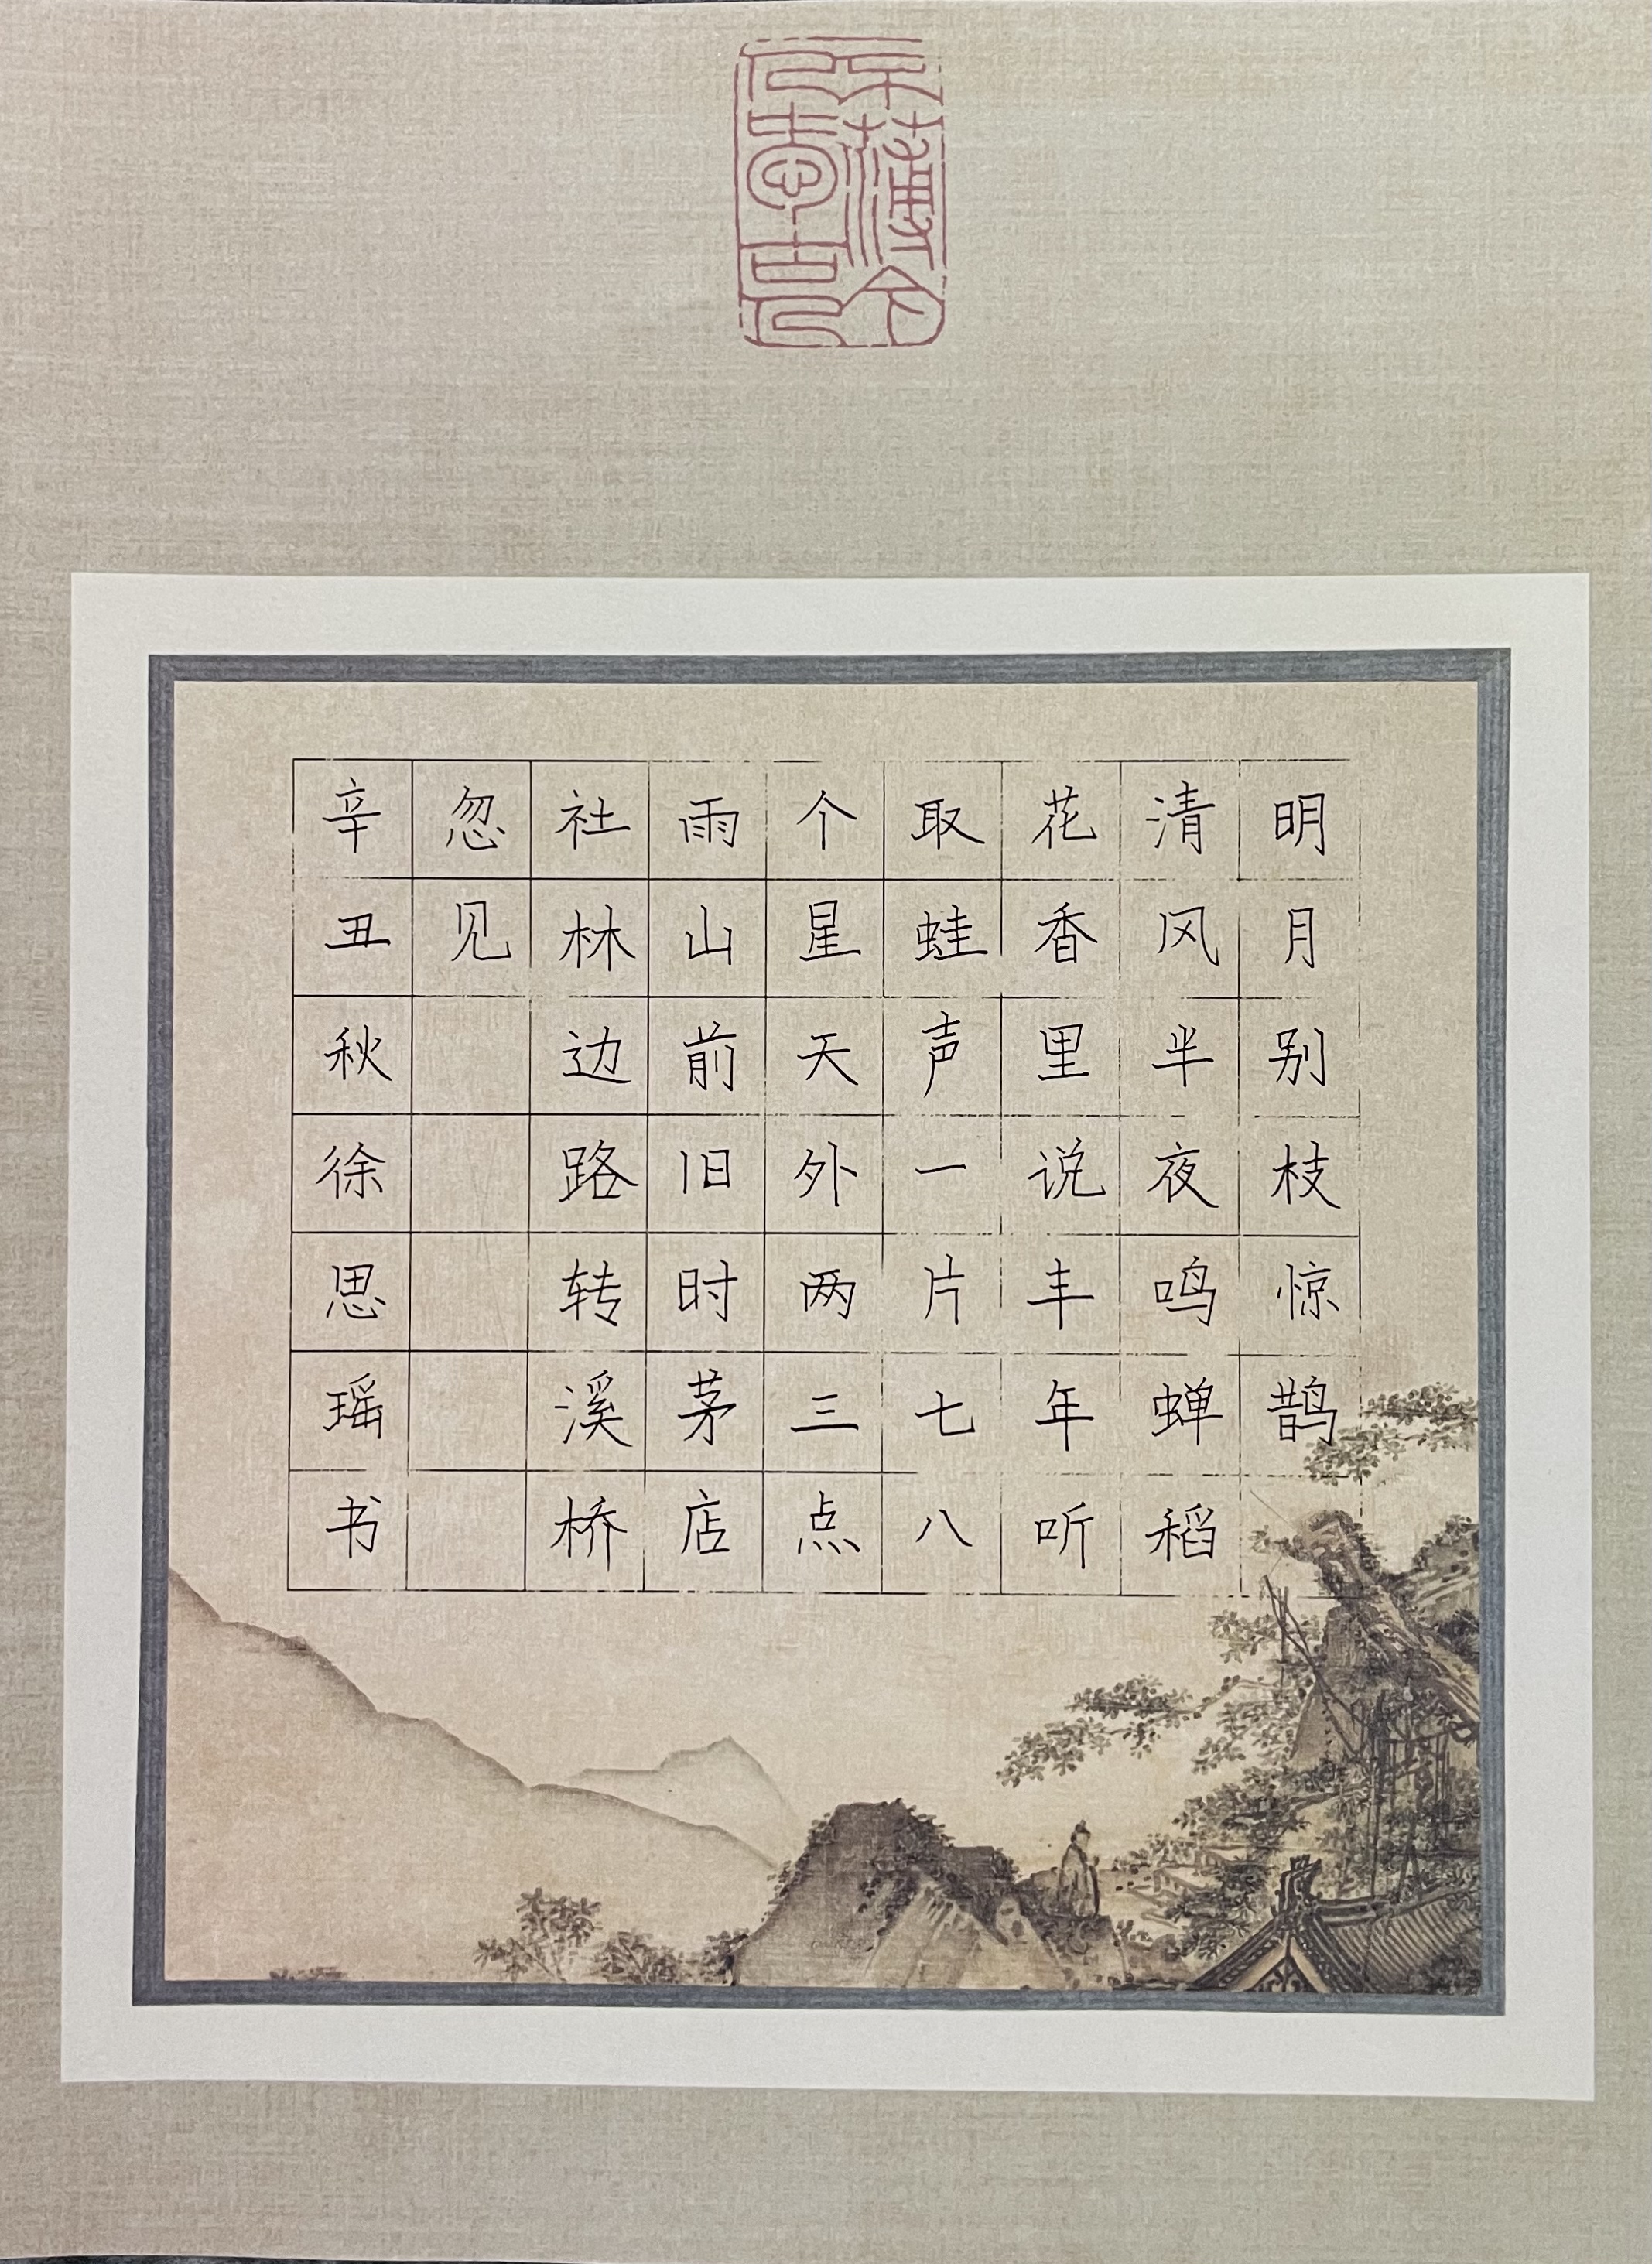 不薄今
人愛古人
明月别枝惊鹊
清风半夜鸣蝉稻
花香里说丰年听
取蛙声一片七八
个星天外两三点
雨山前旧时茅店
社林边路转溪桥
忽见
辛丑秋徐思瑶书